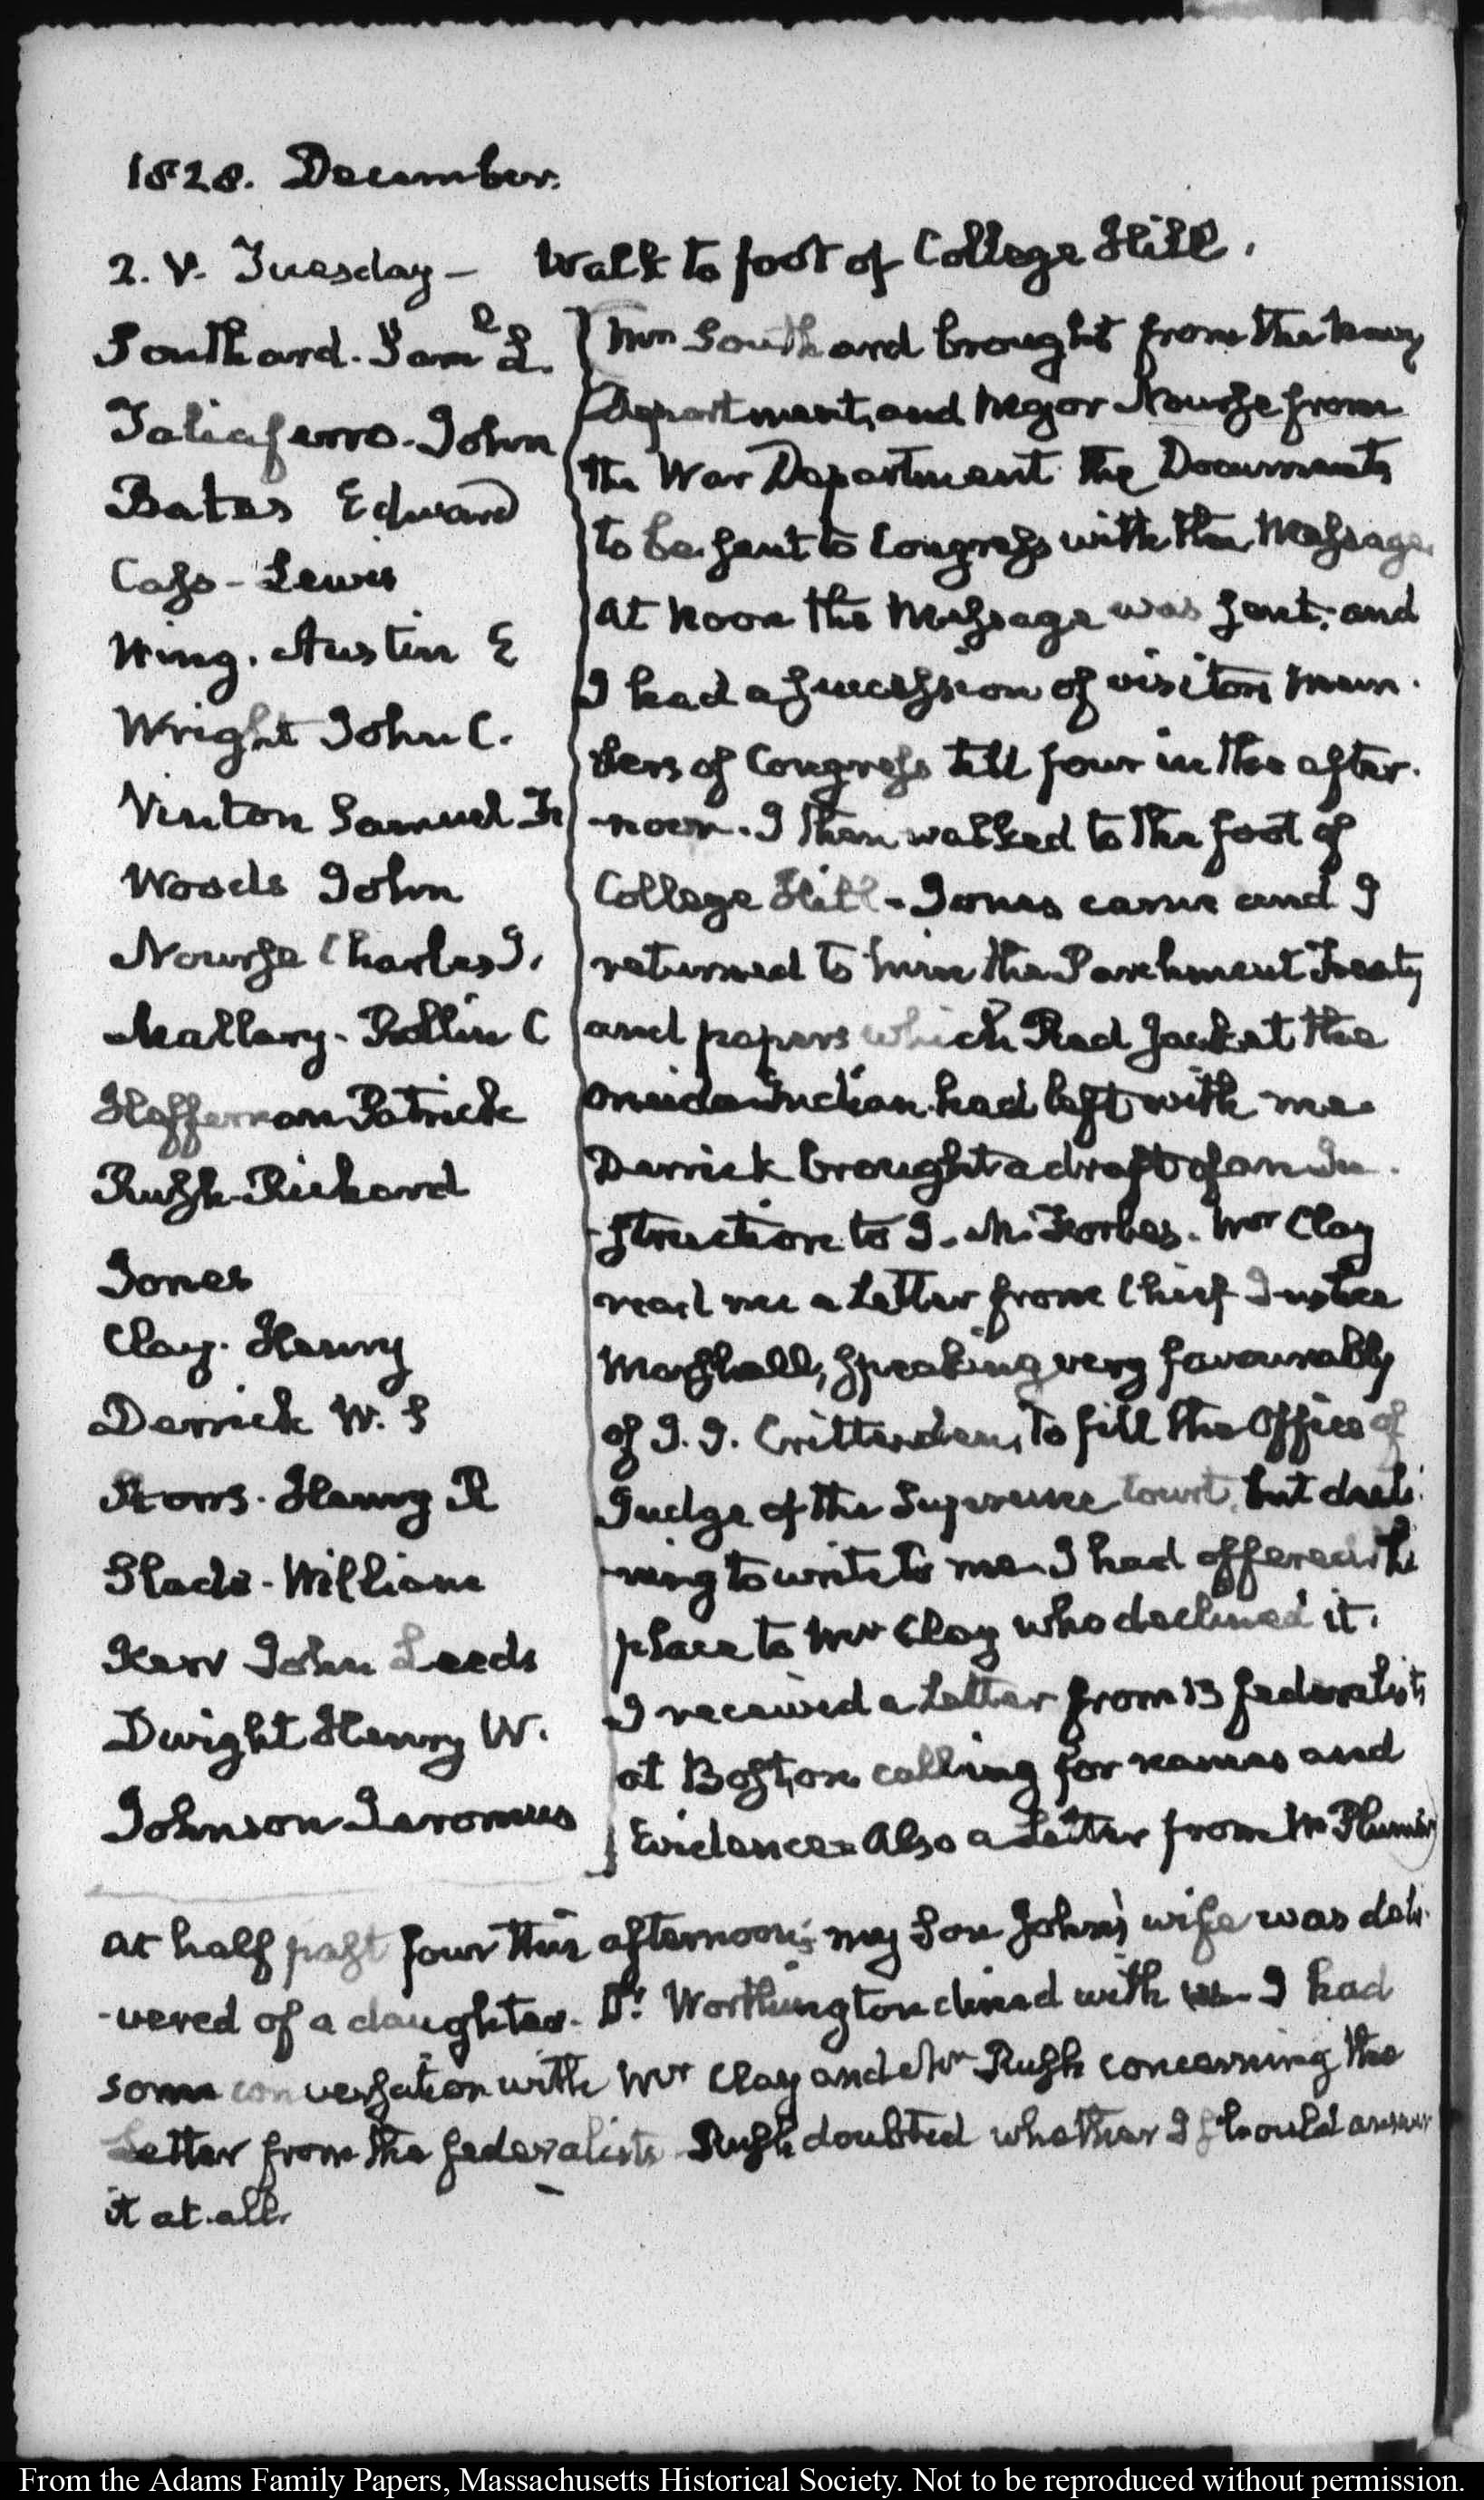 1828. December.
2. V. Tuesday— Walk to foot of College Hill.
Southard. Sam.l L.
Taliaferro. John
Bates Edward
Cass - Lewis
Wing. Austin E
Wright John C.
Vinton Samuel F
Woods John
Nourse Charles J.
Mallary. Rollin C
Heffernan Patrick
Rush Richard
Jones
Clay. Henry
Derrick W. S
Storrs. Henry R
Slade - William
Kerr John Leeds
Dwight Henry W.
Johnson Jeromus
Mr. Southard brought from the Navy
Department, and Major Nourse from
the War Department the Documents
to be sent to Congress with the Message
At Noon the Message was sent; and
I had a succession of visitors Mem-
bers of Congress till four in the after-
-noon. I then walked to the foot of
College Hill - Jones came and I
returned to him the Parchment Treaty
and papers which Red Jacket the
Oneida Indian had left with me.
Derrick brought a draft of an In-
-struction to J. M. Forbes. Mr Clay
read me a Letter from Chief Justice
Marshall, speaking very favourably
of J. J. Crittenden, to fill the Office of
Judge of the Supreme Court, but decli-
-ning to write to me. I had offered the
place to Mr Clay who declined it.
I received a Letter from 13 federalists
at Boston calling for names and
Evidence. Also a Letter from W Plumer
At half past four this afternoon, my Son John's wife was deli-
-vered of a daughter. Dr. Worthington dined with us. I had
some conversation with Mr Clay and Mr Rush concerning the
Letter from the federalists Rush doubted whether I should answer
it at all.
From the Adams Family Papers, Massachusetts Historical Society. Not to be reproduced without permission.